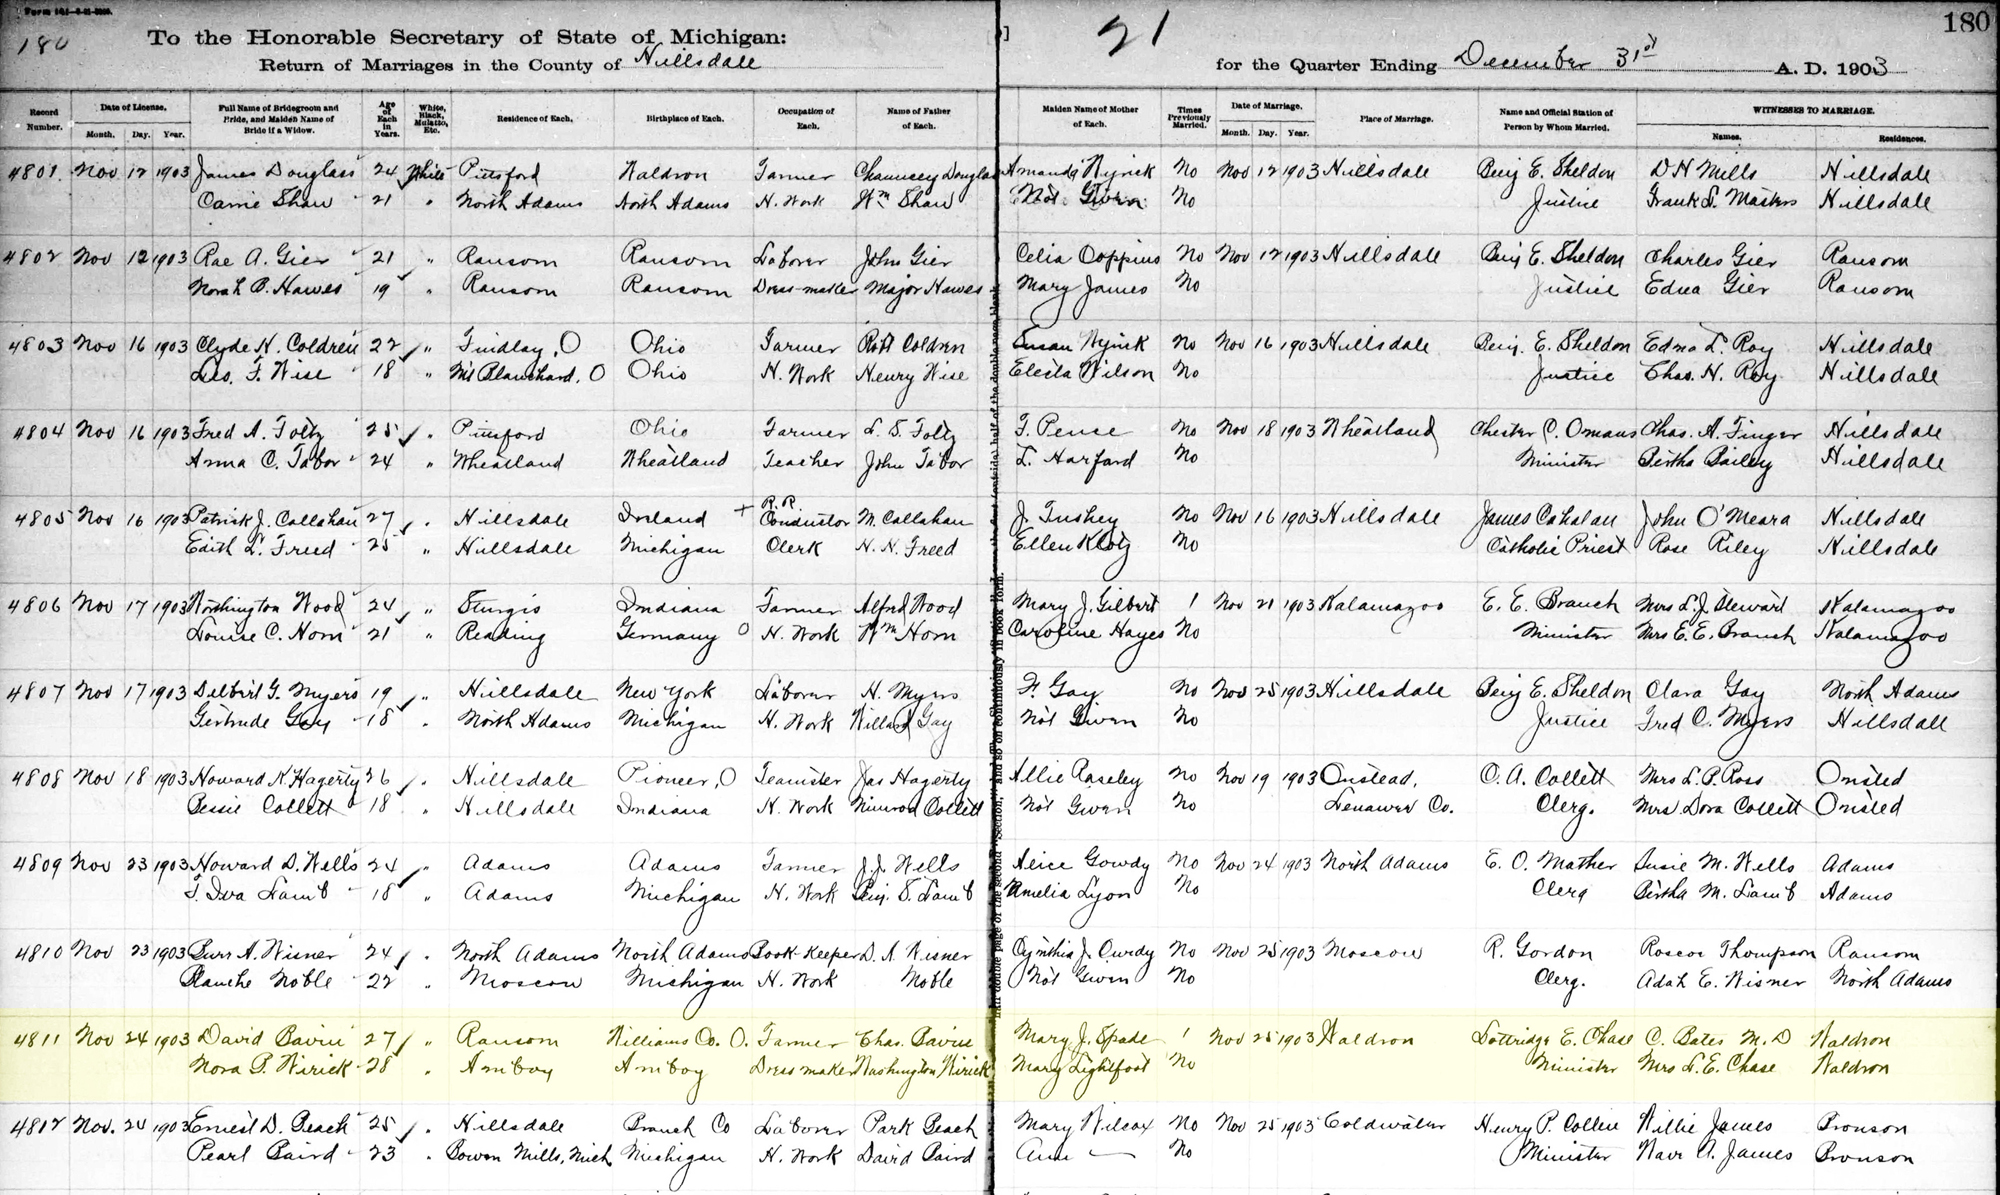 180
To the Honorable Secretary of State of Michigan:
Return of Marriages in the County of Hillsdale
21
180
for the Quarter Ending December 31st A. D. 1903
Record Number. Date of License. Month. Day. Year. Full Name of Bridegroom and Bride, and Maiden Name of Bride if a Widow. Age of Each in Years. White, Black, Mulatto, Etc. Residence of Each. Birthplace of Each. Occupation of Each. Name of Father of Each. Maiden Name of Mother of Each. Times Previously Married. Date of Marriage. Month. Day. Year. Place of Marriage. Name and Official Station of Person by Whom Married. WITNESSES TO MARRIAGE. Names. Residences.
4801 Nov 12 1903 James Douglass 24 White Pittsford Waldron Farmer Chauncey Douglass Amanda Wyrick No Nov 12 1903 Hillsdale Benj E. Sheldon D H Mills Hillsdale
Carrie Shaw 21 " North Adams North Adams H. Work Wm Shaw Not Given No Justice Frank L. Masters Hillsdale
4802 Nov 12 1903 Rae A. Gier 21 " Ransom Ransom Laborer John Gier Celia Coppins No Nov 12 1903 Hillsdale Benj E. Sheldon Charles Gier Ransom
Norah B. Hawes 19 " Ransom Ransom Dress-maker Major Hawes Mary James No Justice Edna Gier Ransom
4803 Nov 16 1903 Clyde H. Coldren 22 " Findlay, O Ohio Farmer Robt Coldren Susan No Nov 16 1903 Hillsdale Benj. E. Sheldon Edna L. Roy Hillsdale
F. Wise 18 " Mt Blanchard, O Ohio H. Work Henry Wise Electa Wilson No Justice Chas. H. Roy Hillsdale
4804 Nov 16 1903 Fred A. Foltz 25 " Pittsford Ohio Farmer L. S. Foltz F. Pense No Nov 18 1903 Wheatland Chester C. Omans Chas. A. Finger Hillsdale
Anna C. Tabor 24 " Wheatland Wheatland Teacher John Tabor L. Harford No Minister Bertha Bailey Hillsdale
4805 Nov 16 1903 Patrick J. Callahan 27 " Hillsdale Ireland + R.R Conductor M. Callahan J. Tushey No Nov 16 1903 Hillsdale James Cahalan John O'Meara Hillsdale
Edith L. Freed 25 " Hillsdale Michigan Clerk H. H. Freed Ellen Klotz No Catholic Priest Rose Riley Hillsdale
4806 Nov 17 1903 Worthington Wood 24 " Sturgis Indiana Farmer Alfred Wood Mary J. Gilbert 1 Nov 21 1903 Kalamazoo E. E. Branch Mrs L. J. Steward Kalamazoo
Louise C. Horn 21 " Reading Germany O H. Work Wm Horn Caroline Hayes No Minister Mrs E. E. Branch Kalamazoo
4807 Nov 17 1903 Delbert G. Myers 19 " Hillsdale New York Laborer H. Myers F. Gay No Nov 25 1903 Hillsdale Benj E. Sheldon Clara Gay North Adams
Gertrude Gay 18 " North Adams Michigan H. Work Willard Gay Not Given No Justice Fred C. Myers Hillsdale
4808 Nov 18 1903 Howard K Hagerty 26 " Hillsdale Pioneer, O Teamster Jas Hagerty Allie Raseley No Nov 19 1903 Onstead, O. A. Collett Mrs L. P. Ross Onsted
Bessie Collett 18 " Hillsdale Indiana H. Work Nimrod Collett Not Given No Lenawee Co. Clerg. Mrs Dora Collett Onsted
4809 Nov 23 1903 Howard D. Wells 24 " Adams Adams Farmer J. J. Wells Alice Gowdy No Nov 24 1903 North Adams E. O. Mather Susie M. Wells Adams
F. Iva Lamb 18 " Adams Michigan H. Work Benj. S. Lamb Amelia Lyon No Clerg Bertha M. Lamb Adams
4810 Nov 23 1903 Burr A. Wisner 24 " North Adams North Adams Book-Keeper D. A. Wisner Cynthia J. Curdy No Nov 25 1903 Moscow R. Gordon Roscoe Thompson Ransom
Blanche Noble 22 " Moscow Michigan H. Work Noble Not Given No Clerg. Adah E. Wisner North Adams
4811 Nov 24 1903 David Bavin 27 " Ransom Williams Co. O. Farmer Chas. Bavin Mary J. Spade 1 Nov 25 1903 Waldron Lottridge E. Chase C. Bates M. D Waldron
Nora P. Wirick 28 " Amboy Amboy Dress maker Washington Wirick Mary Lightfoot No Minister Mrs L. E. Chase Waldron
4812 Nov. 24 1903 Ernest D. Beach 25 " Hillsdale Branch Co Laborer Park Beach Mary Wilcox No Nov 25 1903 Coldwater Henry P. Collin Willie James Bronson
Pearl Baird 23 " Bowen Mills, Mich Michigan H. Work David Baird Ann — No Minister A. James Bronson